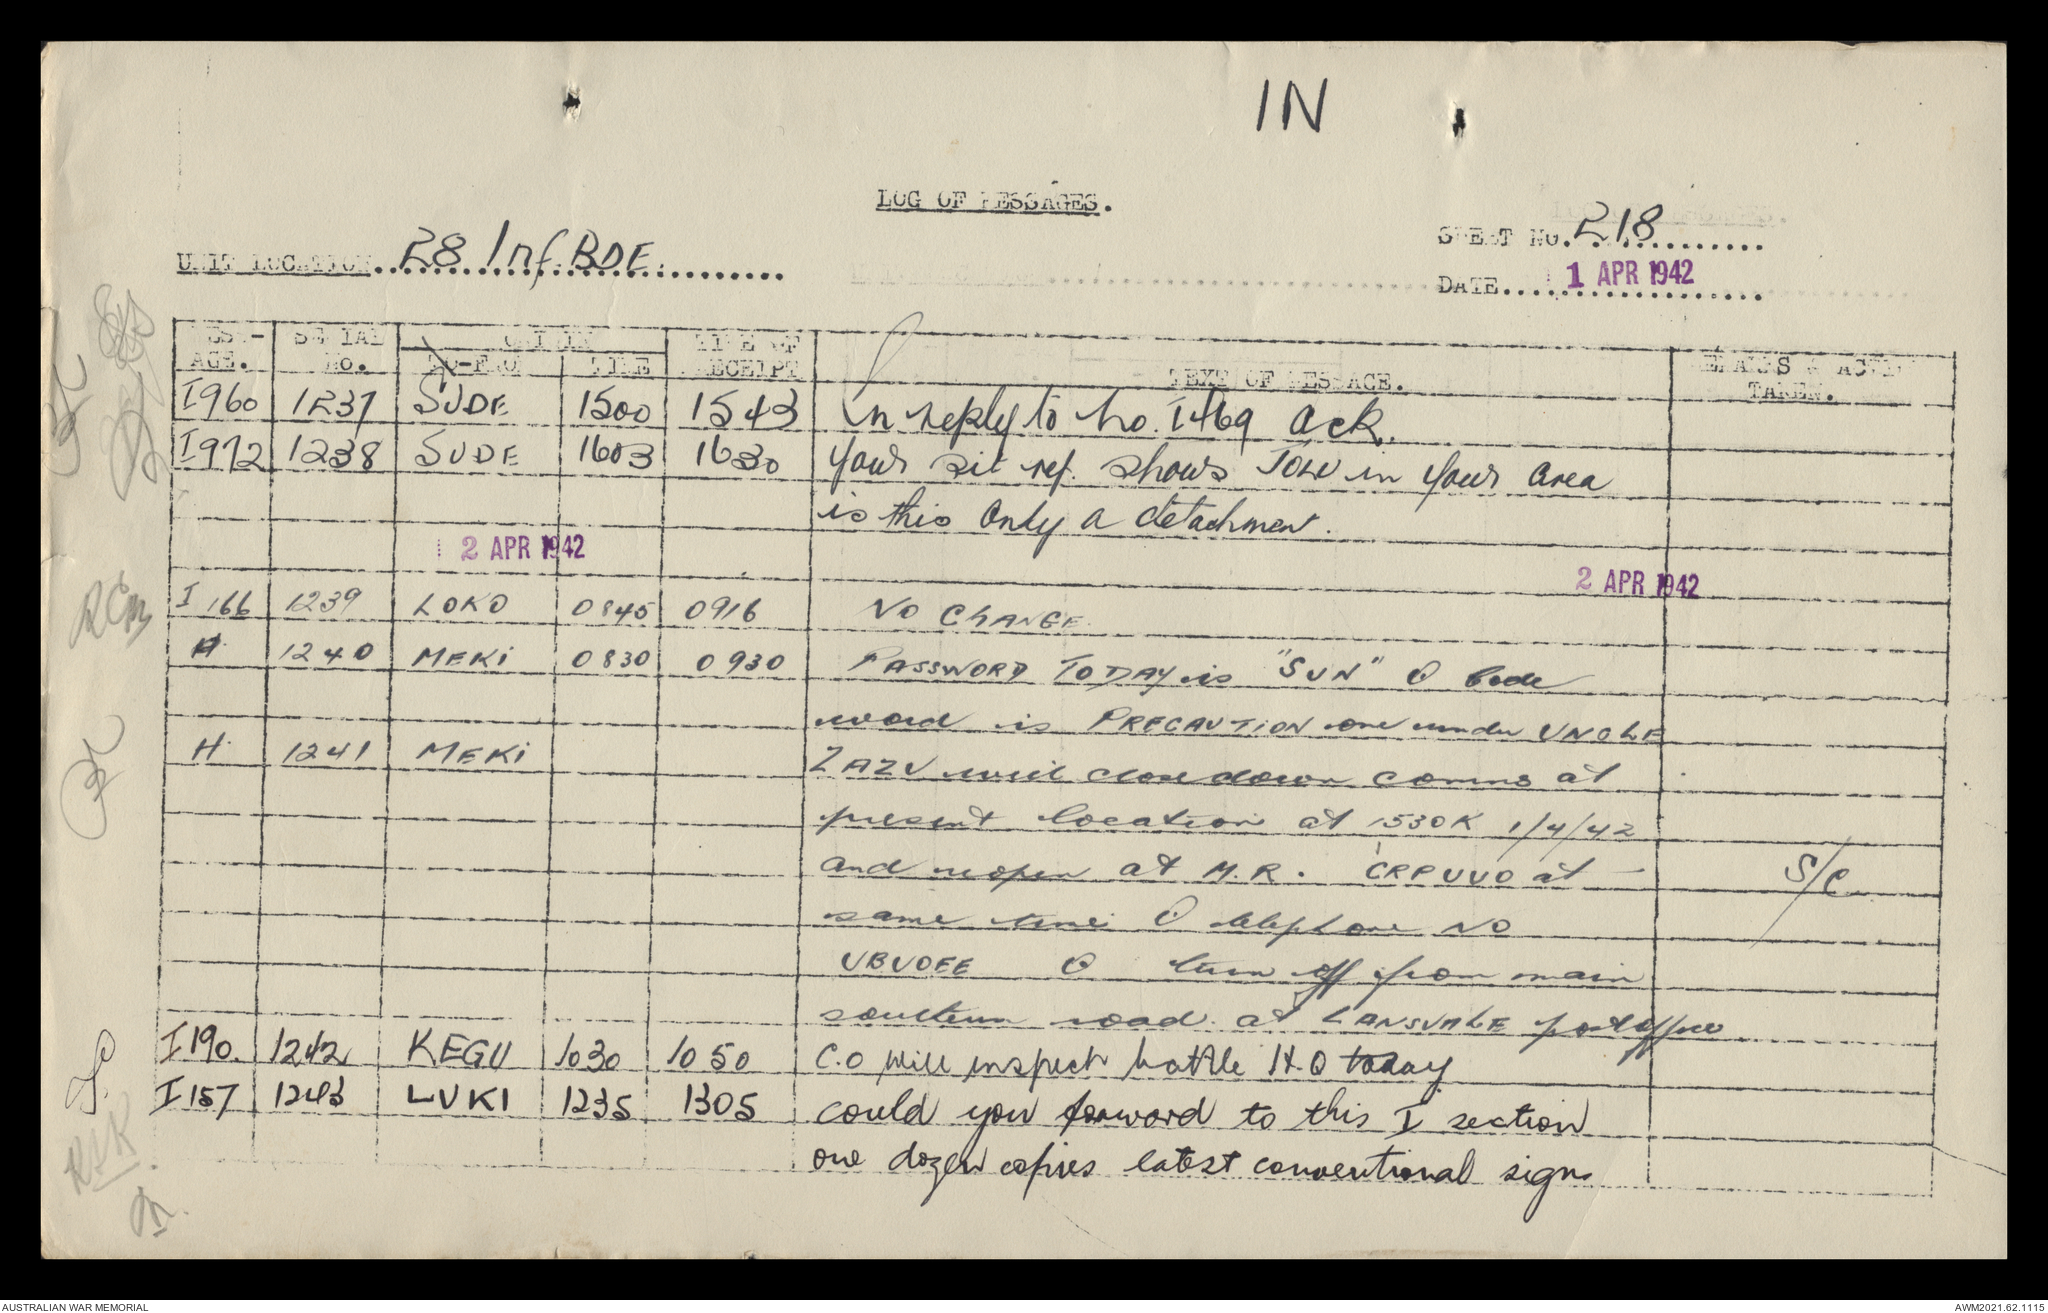 IN
LOG OF MESSAGES.
UNIT LOCATION 28 Inf. BDE.
SHEET NO. 218
DATE 1 APR 1942
MESS-AGE. SERIAL No. ORIGIN TO-FROM TIME TIME OF RECEIPT TEXT OF MESSAGE. REMARKS & ACTION TAKEN.
I960 1237 SUDE 1500 1543 In reply to no. I469 ack.
I972 1238 SUDE 1603 1630 Your sit ref. shows JOLU in your area
is this only a detachment.
2 APR 1942
2 APR 1942
I 166 1239 LOKO 0845 0916 NO CHANGE.
H 1240 MEKI 0830 0930 PASSWORD TODAY is "SUN" O Code
word is PRECAUTION one under UNCLE
H 1241 MEKI ZAZU will close down comns at
present location at 1530K 1/4/42
and reopen at M.R. CRPUVO at S/C
same time O telephone NO
UBUOEE O turn off from main
southern road at LANSVALE post office
I190. 1242 KEGU 1030 1050 C.O will inspect battle H.Q today
I157 1243 LUKI 1235 1305 could you forward to this I section
one dozen copies latest conventional signs
AUSTRALIAN WAR MEMORIAL
AWM2021.62.1115